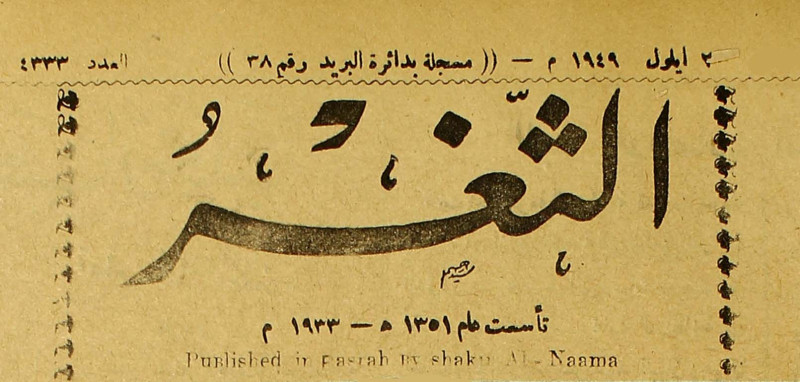 ٢ ايلول ١٩٤٩ م — (( مسجلة بدائرة البريد رقم ٣٨ )) العدد ٤٣٣٣
الثَّغْرُ
تأسست عام ١٣٥١ ه — ١٩٣٣ م
Published in Basrah By shakir AL-Naama